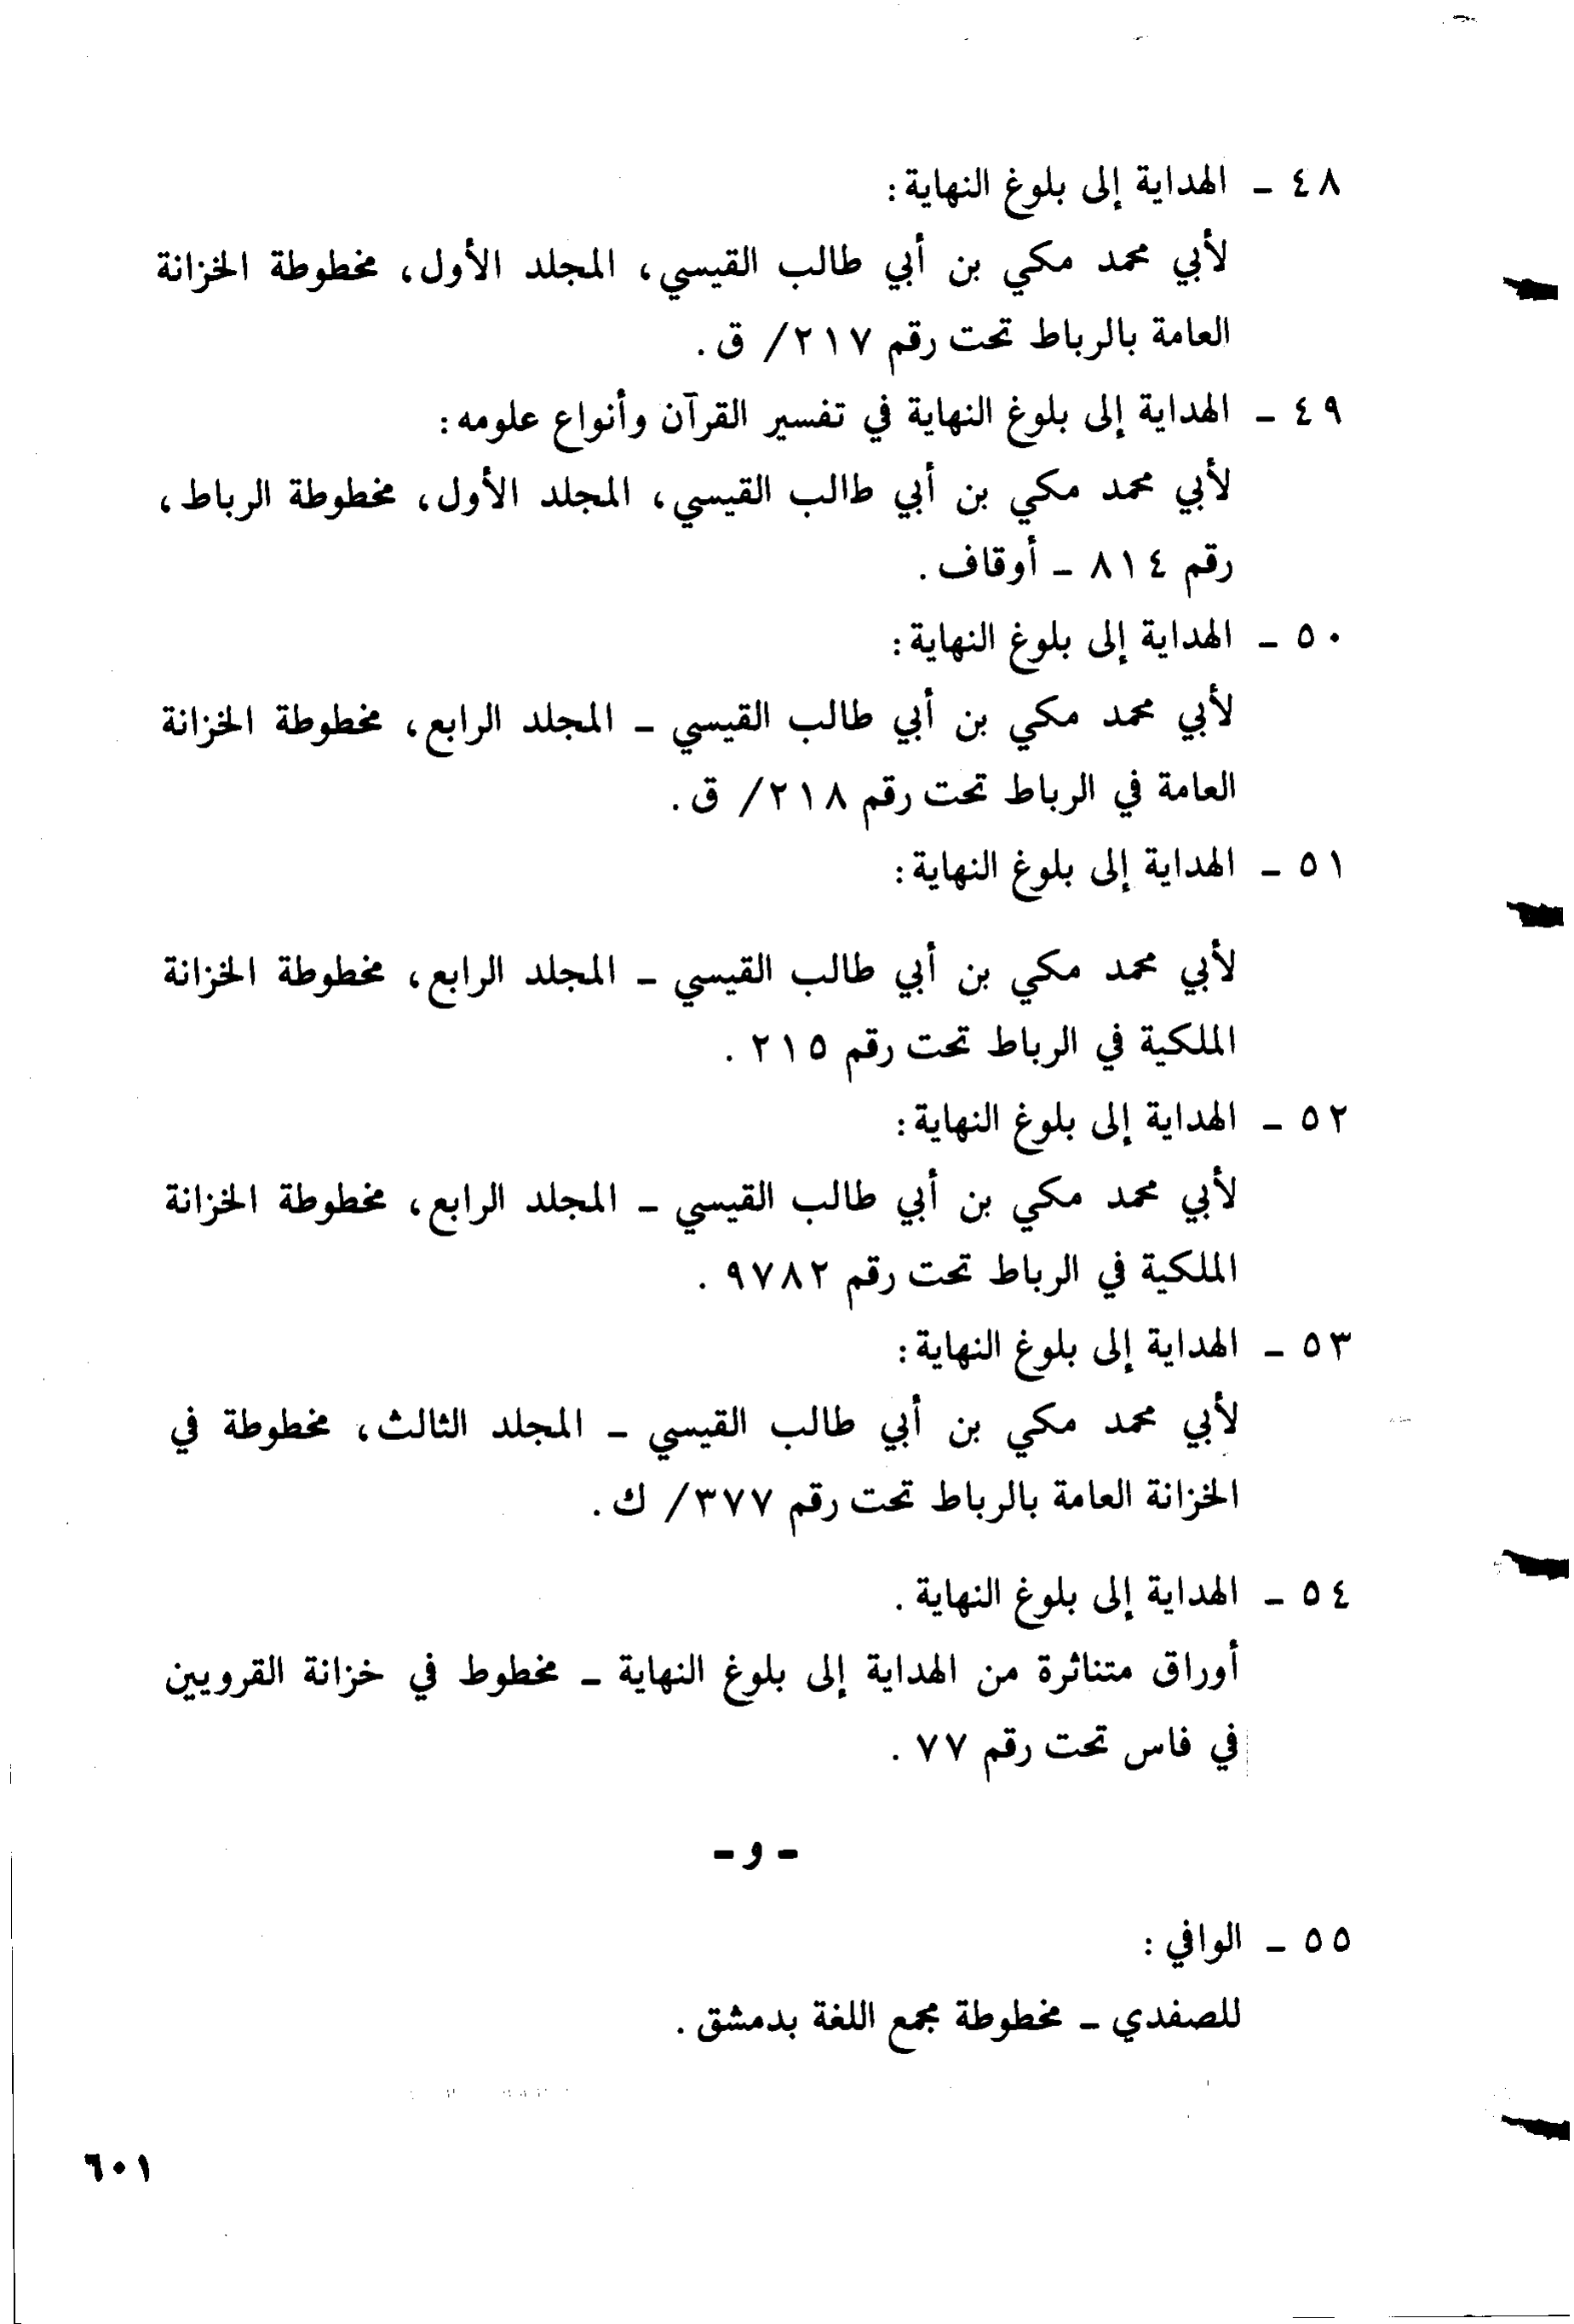 ٤٨ - الهداية إلى بلوغ النهاية:
لأبي محمد مكي بن أبي طالب القيسي، المجلد الأول، مخطوطة الخزانة
العامة بالرباط تحت رقم ٢١٧/ ق.
٤٩ - الهداية إلى بلوغ النهاية في تفسير القرآن وأنواع علومه:
لأبي محمد مكي بن أبي طالب القيسي، المجلد الأول، مخطوطة الرباط،
رقم ٨١٤ - أوقاف.
٥٠ - الهداية إلى بلوغ النهاية:
لأبي محمد مكي بن أبي طالب القيسي - المجلد الرابع، مخطوطة الخزانة
العامة في الرباط تحت رقم ٢١٨/ ق.
٥١ - الهداية إلى بلوغ النهاية:
لأبي محمد مكي بن أبي طالب القيسي - المجلد الرابع، مخطوطة الخزانة
الملكية في الرباط تحت رقم ٢١٥.
٥٢ - الهداية إلى بلوغ النهاية:
لأبي محمد مكي بن أبي طالب القيسي - المجلد الرابع، مخطوطة الخزانة
الملكية في الرباط تحت رقم ٩٧٨٢.
٥٣ - الهداية إلى بلوغ النهاية:
لأبي محمد مكي بن أبي طالب القيسي - المجلد الثالث، مخطوطة في
الخزانة العامة بالرباط تحت رقم ٣٧٧/ ك.
٥٤ - الهداية إلى بلوغ النهاية.
أوراق متناثرة من الهداية إلى بلوغ النهاية - مخطوط في خزانة القرويين
في فاس تحت رقم ٧٧.
- و -
٥٥ - الوافي:
للصفدي - مخطوطة مجمع اللغة بدمشق.
٦٠١